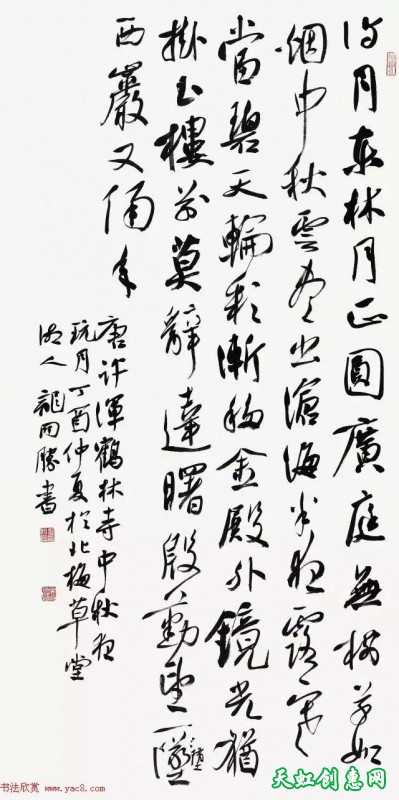 待月東林月正圓廣庭無樹草如
烟中秋雲盡出滄海半夜露寒
當碧天輪彩漸移金殿外鏡光猶
掛玉樓前莫辭達曙殷勤望一墮
西巖又隔年
唐許渾鶴林寺中秋夜
玩月丁酉仲夏於北梅草堂
湘人龍開勝書
书法欣赏 www.yac8.com
天虹创惠网